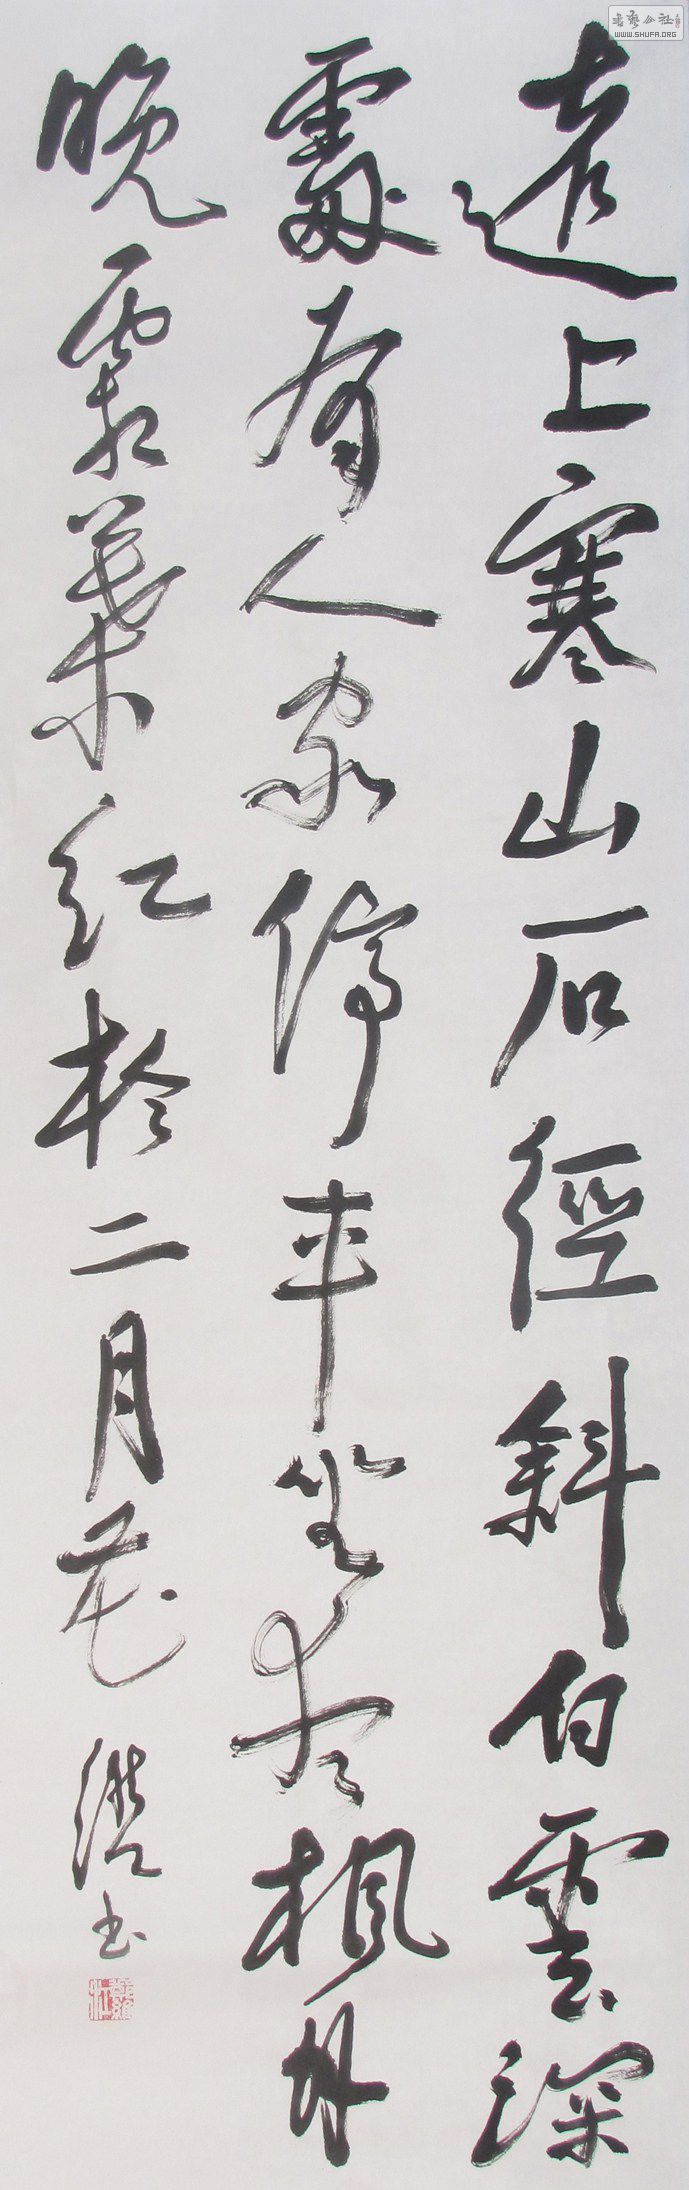 遠上寒山石徑斜白雲深
處有人家停車坐愛楓林
晚霜葉紅於二月花
书
WWW.SHUFA.ORG